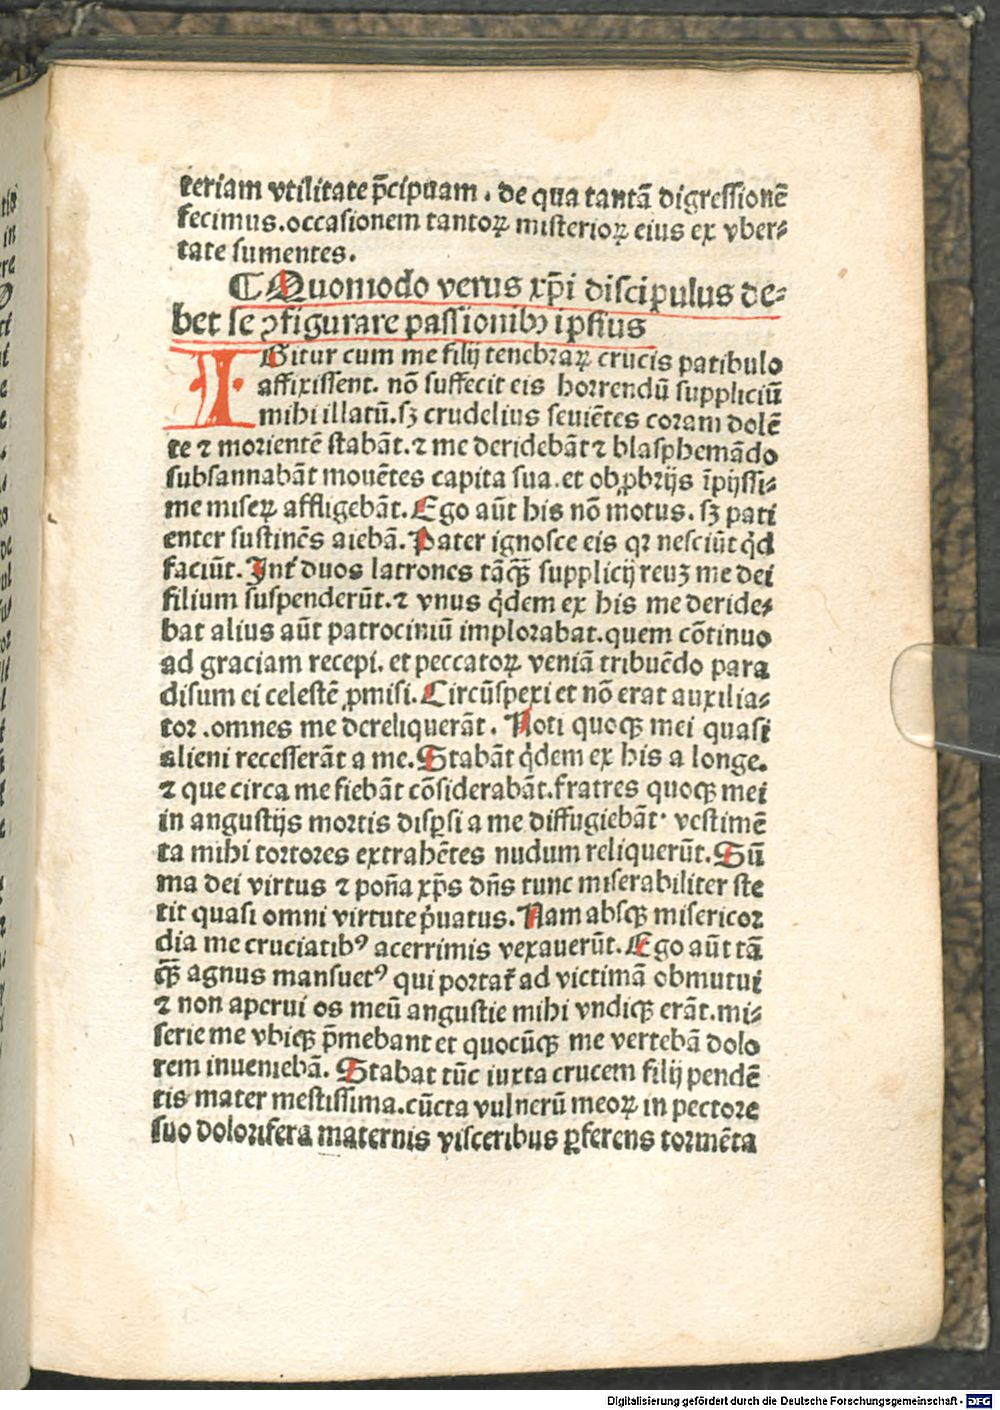 teriam vtilitate p̄cipuam. de qua tantā digressionē
fecimus.occasionem tantoꝝ misterioꝝ eius ex vber⸗
tate sumentes.
⸿ Quomodo verus xp̄i discipulus de⸗
bet se ↄfigurare passionibꝰ ipsius
IGitur cum me filij tenebraꝝ crucis patibulo
affixissent. nō suffecit eis horrendū suppliciū
mihi illatū.sꝫ crudelius seuiētes coram dolē
te ⁊ morientē stabāt.⁊ me deridebāt ⁊ blasphemādo
subsannabāt mouētes capita sua.et obꝓbrijs īpijssi⸗
me miseꝝ affligebāt.Ego aūt his nō motus.sꝫ pati
enter sustinēs aiebā.Pater ignosce eis qꝛ nesciūt qd̓
faciūt.Int̓ duos latrones tāꝙ̄ supplicij reuꝫ me dei
filium suspenderūt.⁊ vnus qdem ex his me deride⸗
bat alius aūt patrociniū implorabat.quem cōtinuo
ad graciam recepi.et peccatoꝝ veniā tribuēdo para
disum ei celestē ꝓmisi.Circūspexi et nō erat auxilia⸗
tor.omnes me dereliquerāt. Noti quoqꝫ mei quasi
alieni recesserāt a me.Stabāt qdem ex his a longe.
⁊ que circa me fiebāt cōsiderabāt.fratres quoqꝫ mei
in angustijs mortis disꝑsi a me diffugiebāt· vestimē
ta mihi tortores extrahētes nudum reliquerūt.Sū
ma dei virtus ⁊ potīa xp̄s dn̄s tunc miserabiliter ste
tit quasi omni virtute p̓uatus.Nam absqꝫ misericor
dia me cruciatibꝰ acerrimis vexauerūt.Ego aūt tā
ꝙ̄ agnus mansuetꝰ qui portat̓ ad victimā obmutui
⁊ non aperui os meū angustie mihi vndiqꝫ erāt.mi⸗
serie me vbiqꝫ p̄mebant et quocūqꝫ me vertebā dolo
rem inueniebā. Stabat tūc iuxta crucem filij pendē
tis mater mestissima.cūcta vulnerū meoꝝ in pectore
suo dolorifera maternis visceribus ꝑferens tormēta
Digitalisierung gefördert durch die Deutsche Forschungsgemeinschaft - DFG